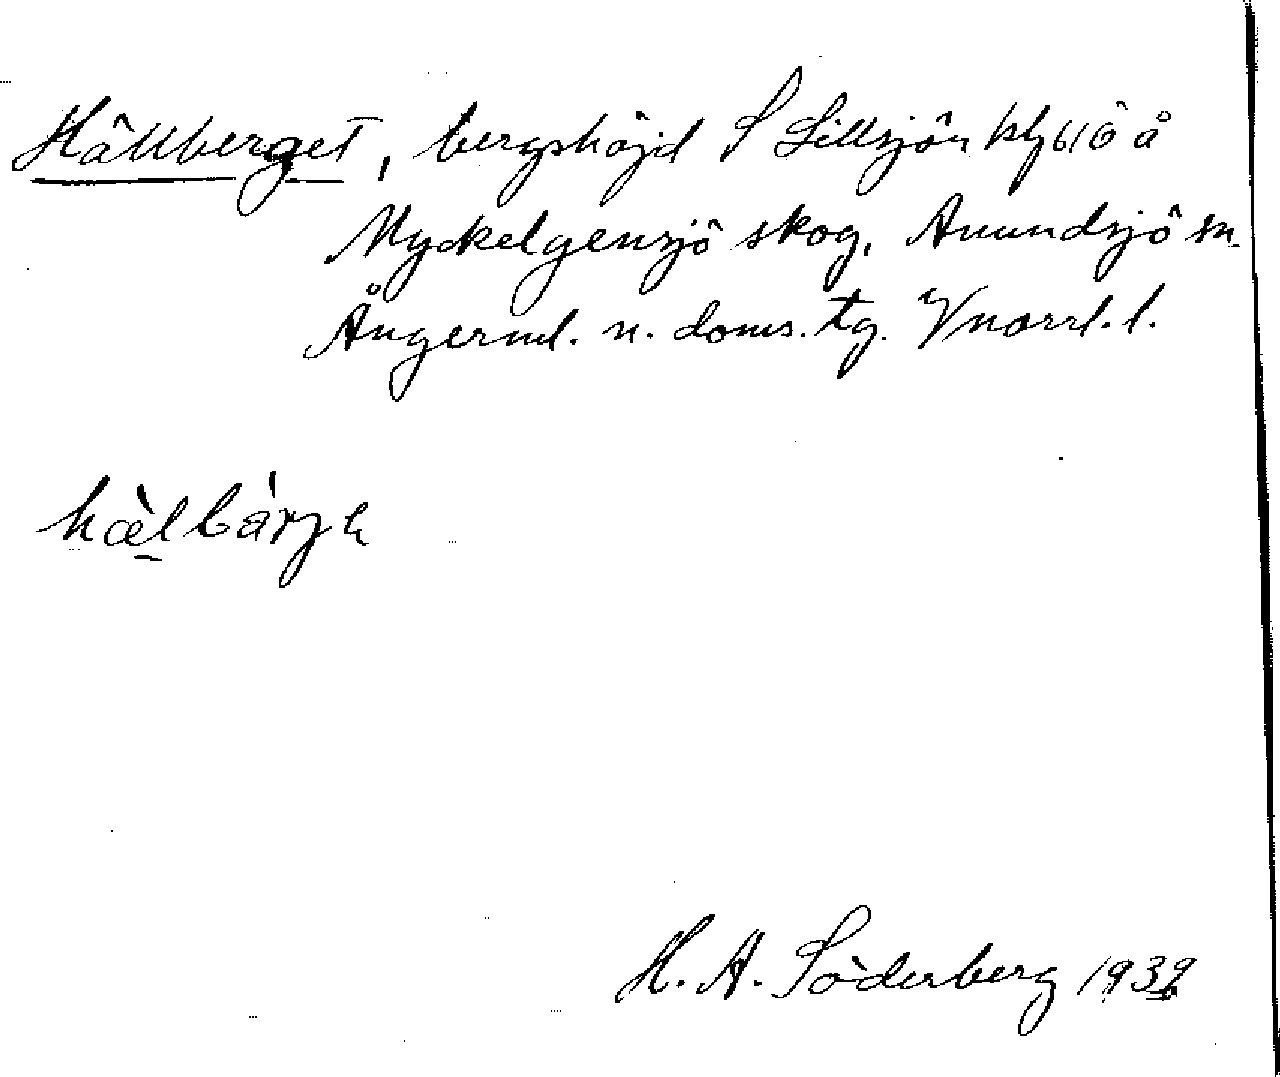 Hällberget, bergshöjd S Lillsjön blyö å
Myckelgensjö skog, Anundsjö sn.
Ångerml. n. doms. tg. Vnorrl. l.
hæ̀lbàrjɛ
H. A. Söderberg 1939